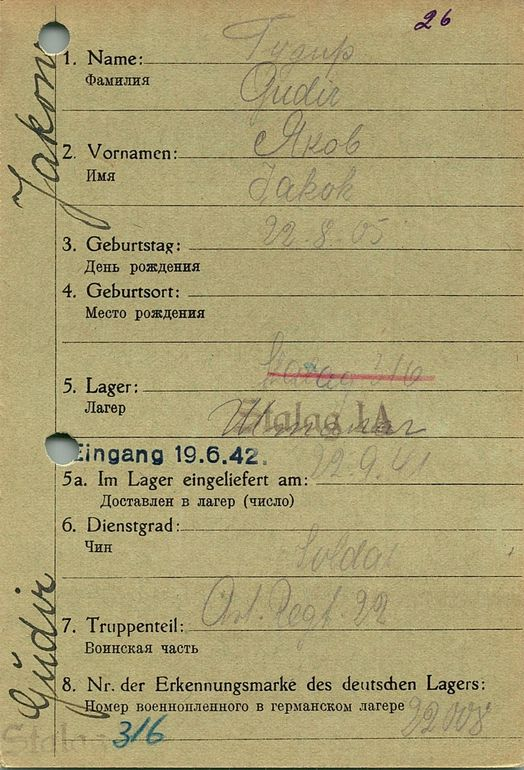 26
1. Name: Гудир
Фамилия Gudir
2. Vornamen: Яков
Имя Jakob
3. Geburtstag: 22.8.05
День рождения
4. Geburtsort:
Место рождения
316
5. Lager: Stalag IA
Лагер
Eingang 19.6.42. 22.9.41
5a. Im Lager eingeliefert am:
Доставлен в лагер (число)
6. Dienstgrad: Soldat
Чин
Art. Regt. 22
7. Truppenteil:
Воинская часть
8. Nr. der Erkennungsmarke des deutschen Lagers:
Номер военнопленного в германском лагере
Stalag 316
Gudir Jakow